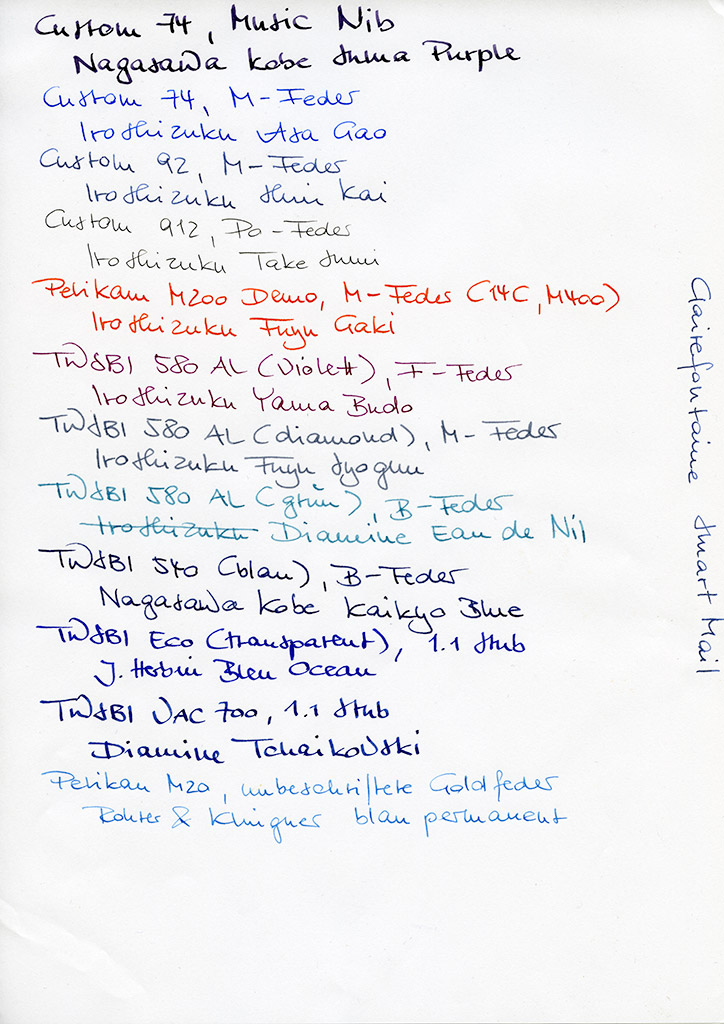 Custom 74, Music Nib
Nagasawa Kobe Suma Purple
Custom 74, M-Feder
Iroshizuku Asa Gao
Custom 92, M-Feder
Iroshizuku Shin Kai
Custom 912, Po-Feder
Iroshizuku Take Sumi
Pelikan M200 Demo, M-Feder (14C, M400)
Iroshizuku Fuyu Gaki
TWSBI 580 AL (Violett), F-Feder
Iroshizuku Yama Budo
TWSBI 580 AL (diamond), M-Feder
Iroshizuku Fuyu Syogun
TWSBI 580 AL (grün), B-Feder
Iroshizuku Diamine Eau de Nil
TWSBI 540 (blau), B-Feder
Nagasawa Kobe Kaikyo Blue
TWSBI Eco (transparent), 1.1 Stub
J. Herbin Bleu Ocean
TWSBI VAC 700, 1.1 Stub
Diamine Tchaikovski
Pelikan M20, unbeschriftete Goldfeder
Rohrer & Klingner blau permanent
Clairefontaine Smart Mail